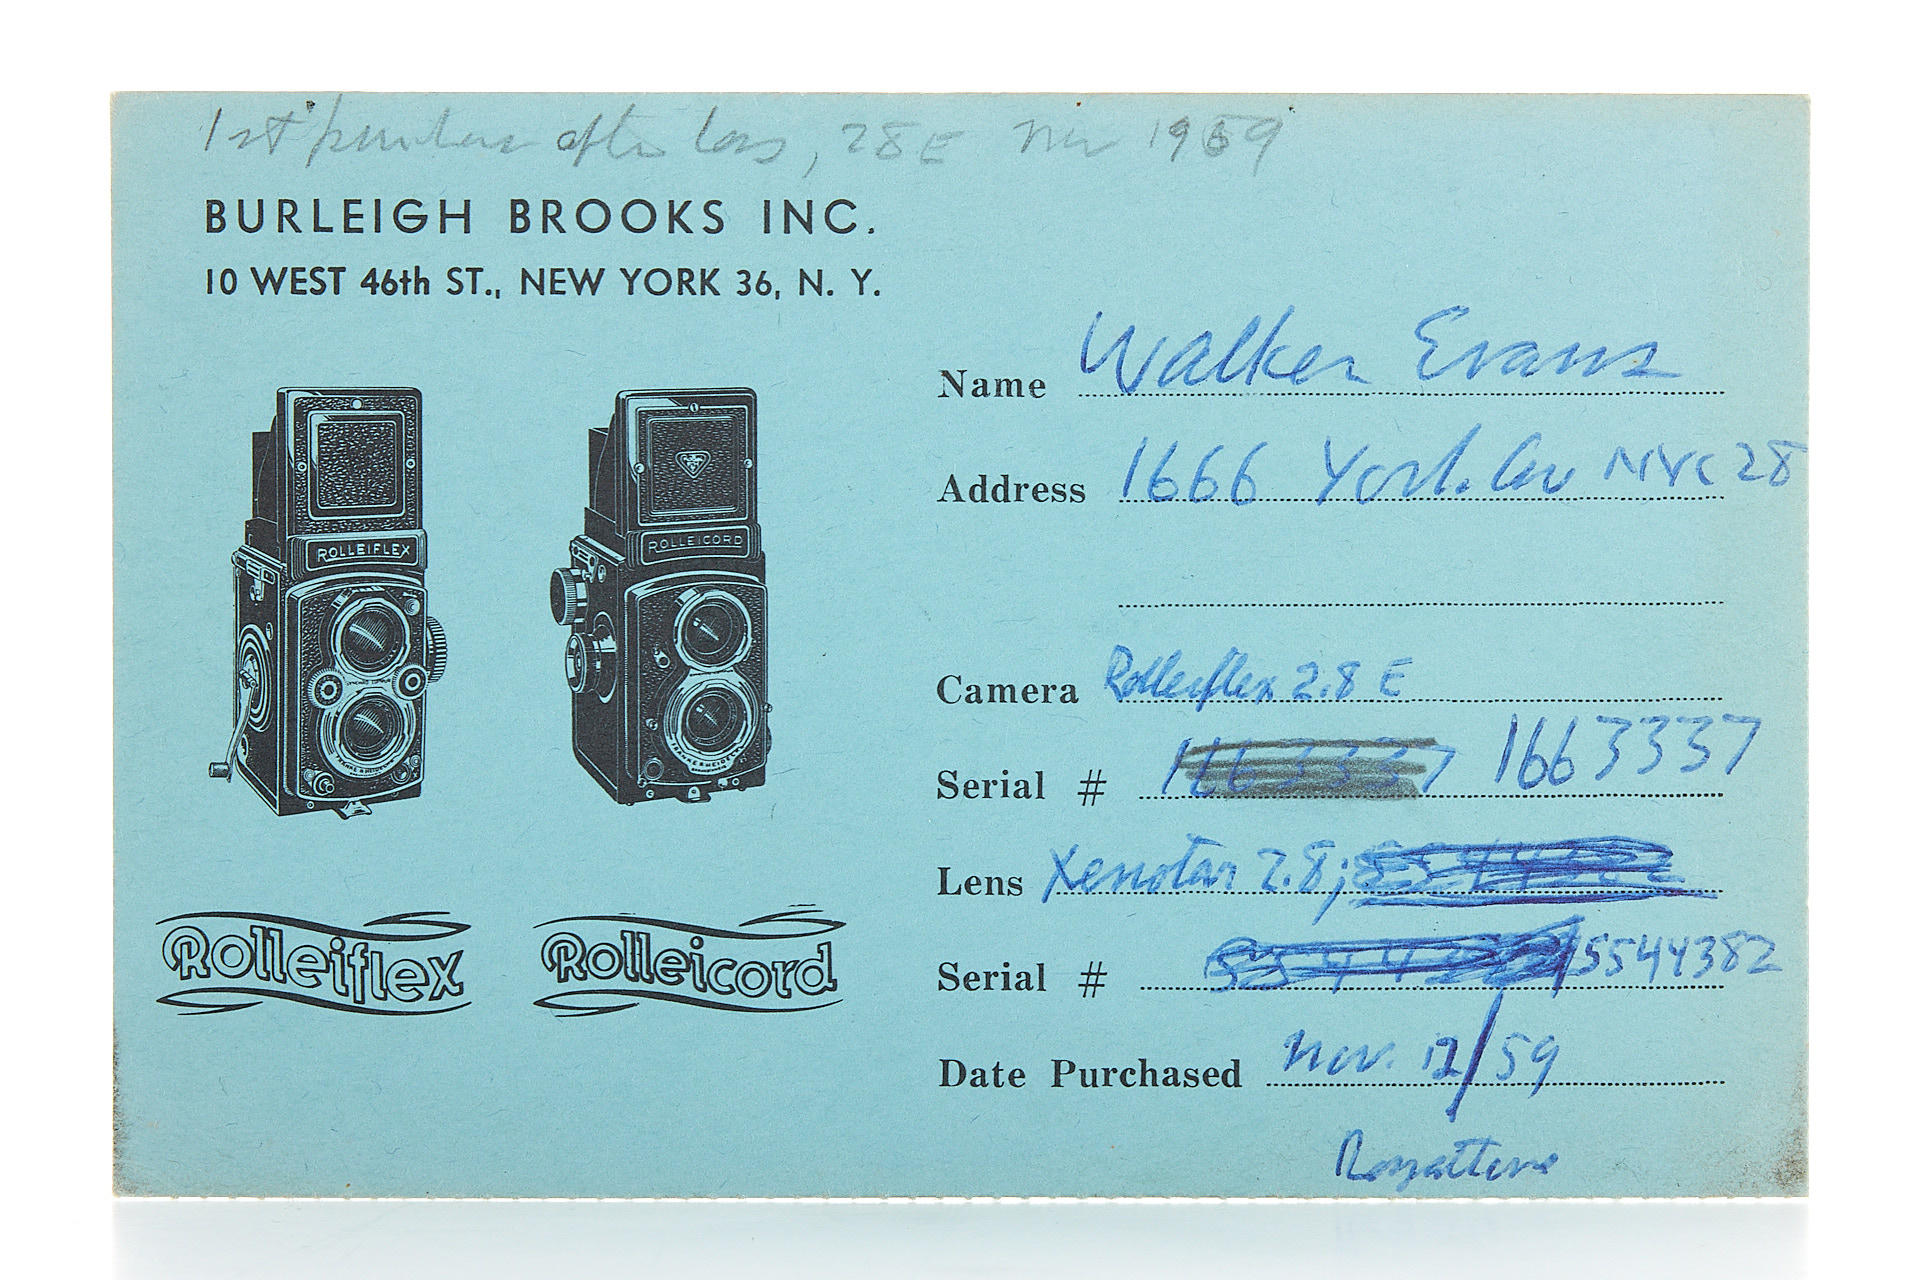 1st purchase after loss, 28E Nov 1959
BURLEIGH BROOKS INC.
10 WEST 46th ST., NEW YORK 36, N. Y.
ROLLEIFLEX
ROLLEICORD
Rolleiflex
Rolleicord
Name Walker Evans
Address 1666 York Av NYC 28
Camera Rolleiflex 2.8 E
Serial # 1663337 1663337
Lens Xenotar 2.8;
Serial # 5544382
Date Purchased Nov. 12/59